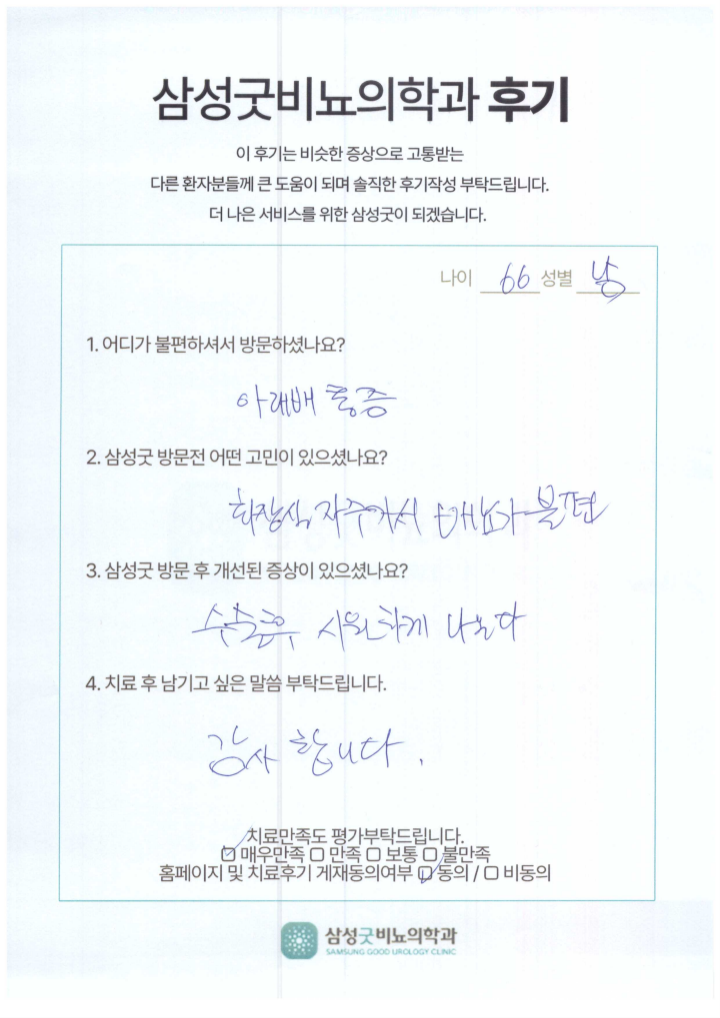 삼성굿비뇨의학과 후기
이 후기는 비슷한 증상으로 고통받는
다른 환자분들께 큰 도움이 되며 솔직한 후기작성 부탁드립니다.
더 나은 서비스를 위한 삼성굿이 되겠습니다.
나이 66 성별 남
1. 어디가 불편하셔서 방문하셨나요?
아래배 통증
2. 삼성굿 방문전 어떤 고민이 있으셨나요?
화장실 자주가서 불편
3. 삼성굿 방문 후 개선된 증상이 있으셨나요?
수술후 시원하게 나온다
4. 치료 후 남기고 싶은 말씀 부탁드립니다.
감사 합니다.
치료만족도 평가부탁드립니다.
☑ 매우만족 ☐ 만족 ☐ 보통 ☐ 불만족
홈페이지 및 치료후기 게재동의여부 ☑ 동의 / ☐ 비동의
삼성굿비뇨의학과
SAMSUNG GOOD UROLOGY CLINIC